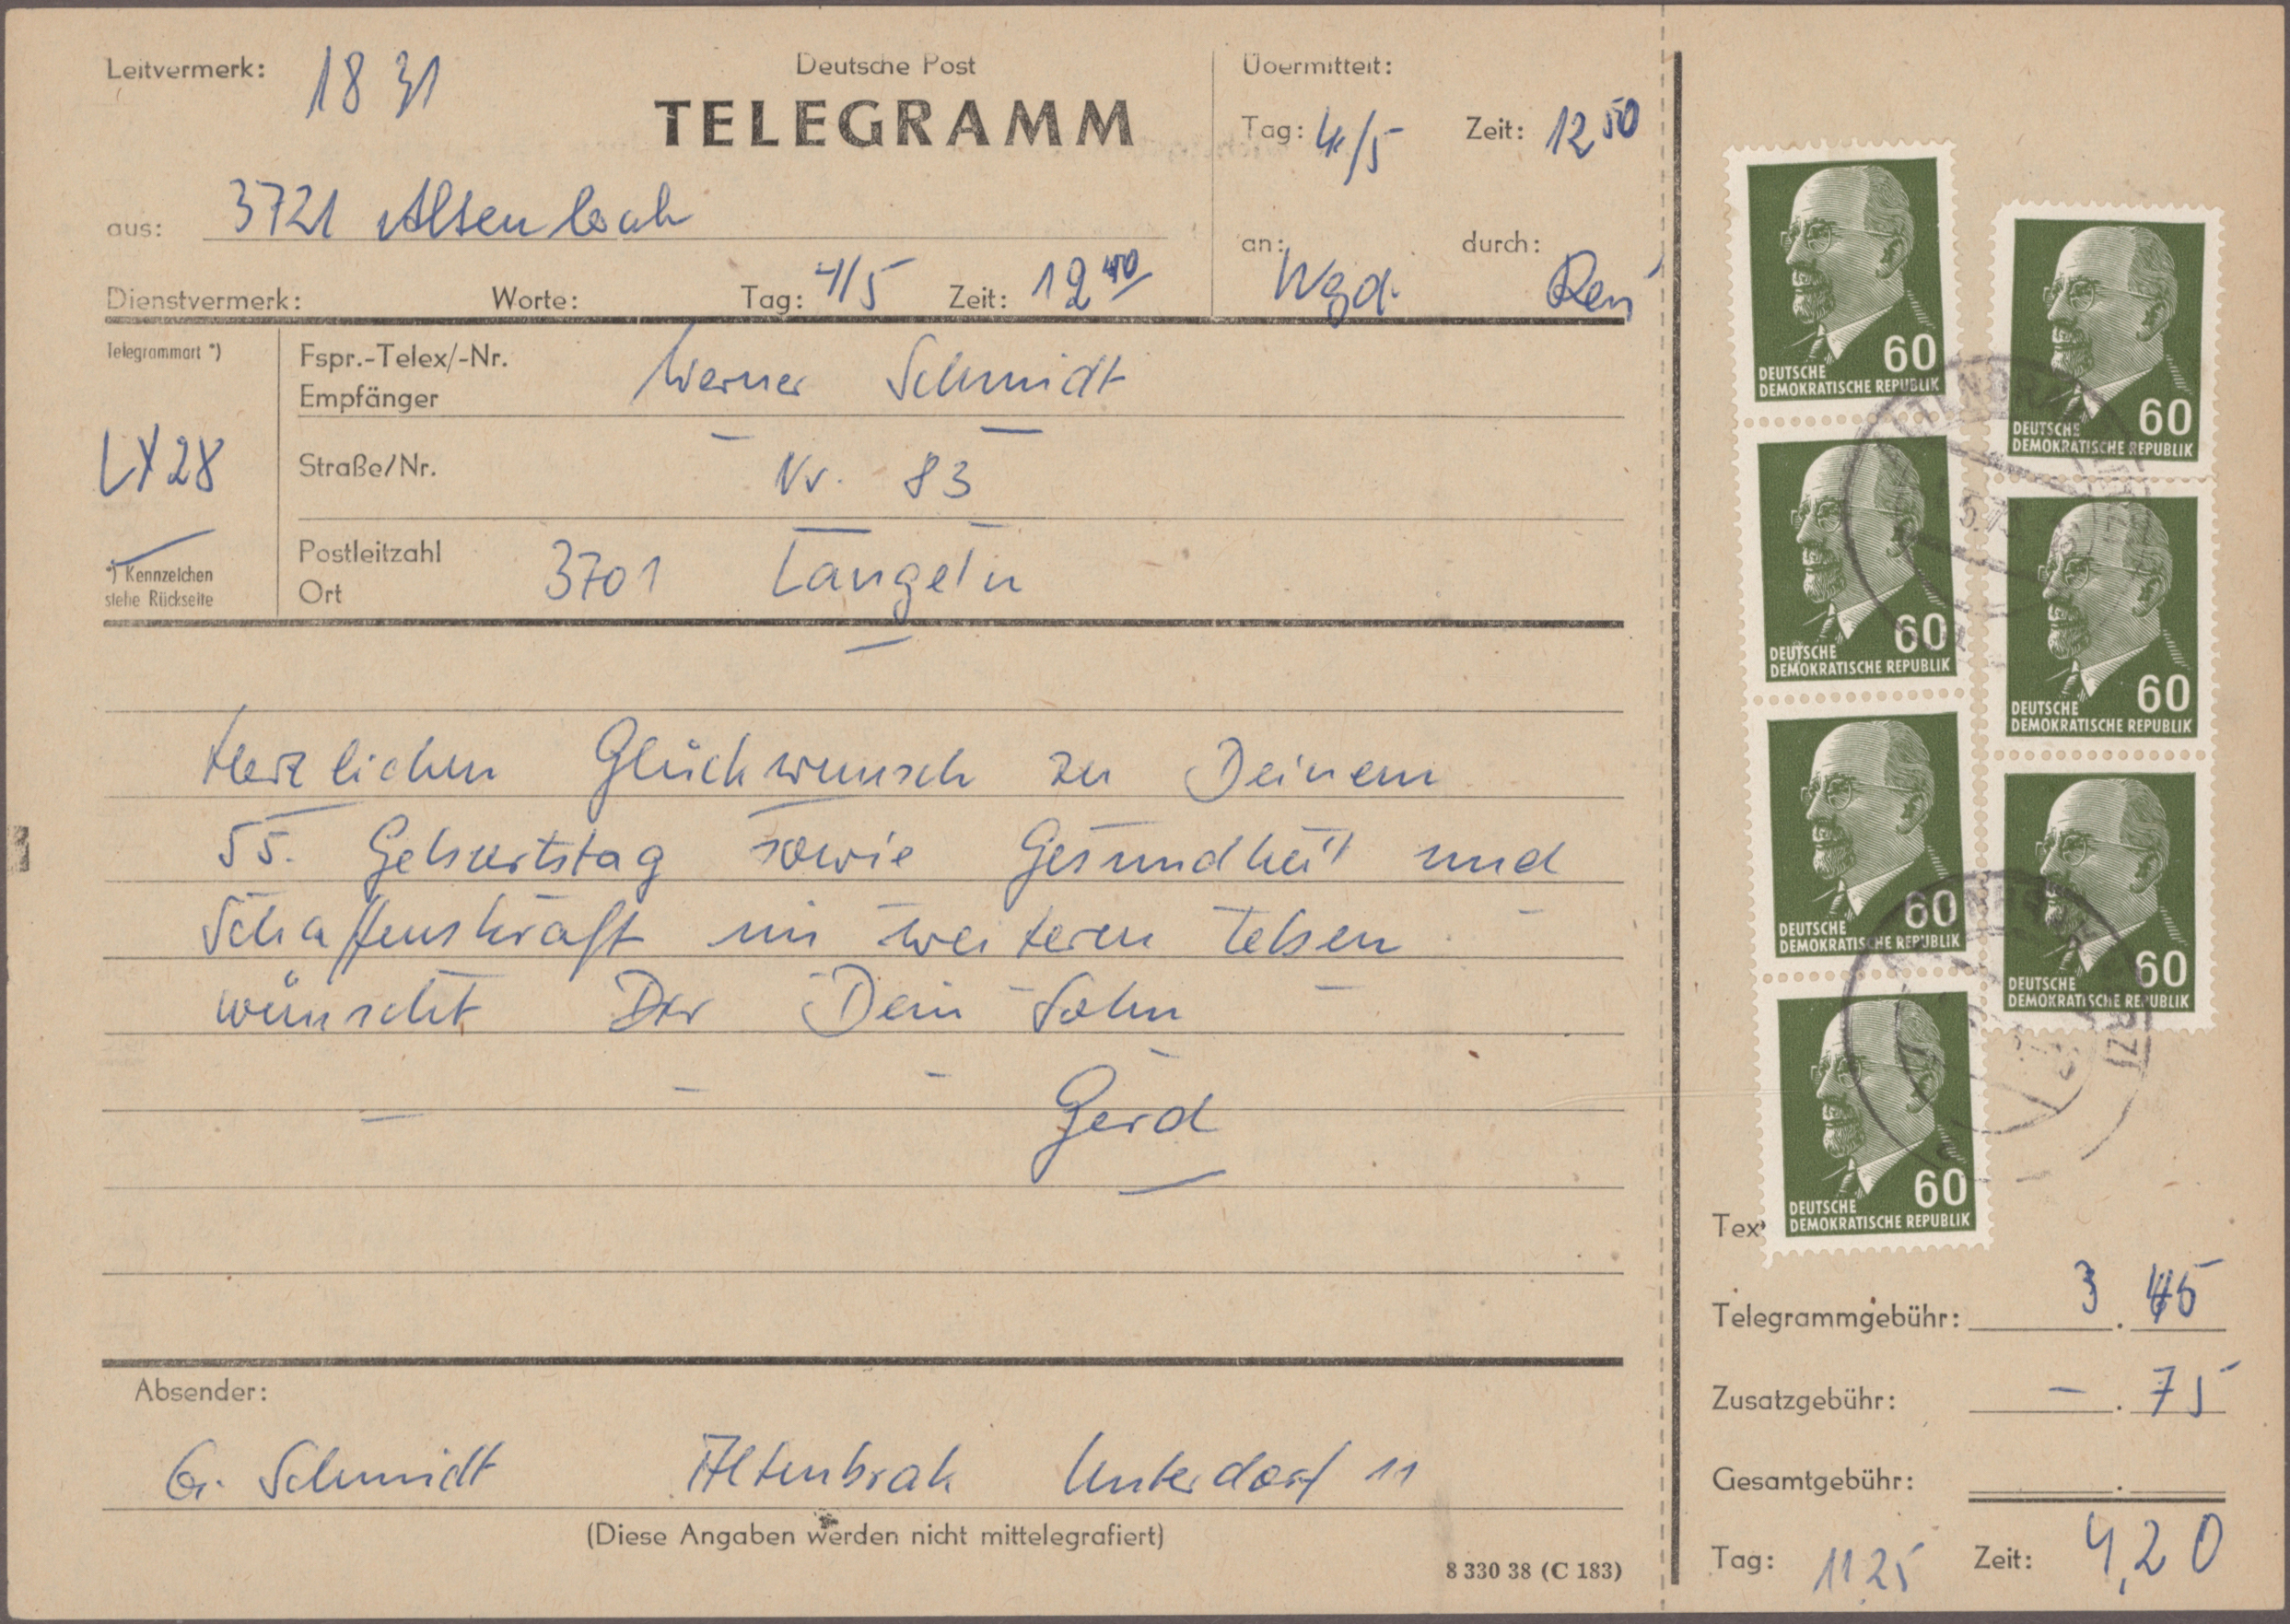 Leitvermerk: 18 31
Deutsche Post
TELEGRAMM
aus: 3721 Altenbrak
Dienstvermerk: Worte: Tag: 4/5 Zeit: 12 40
Übermittelt:
Tag: 4/5 Zeit: 12 50
an: Wgd. durch:
Telegrammart *)
LX 28
*) Kennzeichen
siehe Rückseite
Fspr.-Telex/-Nr.
Empfänger Werner Schmidt
Straße/Nr. Nr. 83
Postleitzahl
Ort 3701 Langeln
Herzlichen Glückwunsch zu Deinem
55. Geburtstag sowie Gesundheit und
Schaffenskraft im weiteren Leben
wünscht Dir Dein Sohn
Gerd
Absender:
G. Schmidt Altenbrak Unterdorf 11
(Diese Angaben werden nicht mittelegrafiert)
8 330 38 (C 183)
60
DEUTSCHE
DEMOKRATISCHE REPUBLIK
60
DEUTSCHE
DEMOKRATISCHE REPUBLIK
60
DEUTSCHE
DEMOKRATISCHE REPUBLIK
60
DEUTSCHE
DEMOKRATISCHE REPUBLIK
60
DEUTSCHE
DEMOKRATISCHE REPUBLIK
60
DEUTSCHE
DEMOKRATISCHE REPUBLIK
60
DEUTSCHE
DEMOKRATISCHE REPUBLIK
Tex
Telegrammgebühr: 3.45
Zusatzgebühr: –.75
Gesamtgebühr: .
4,20
Tag: 11 25 Zeit: